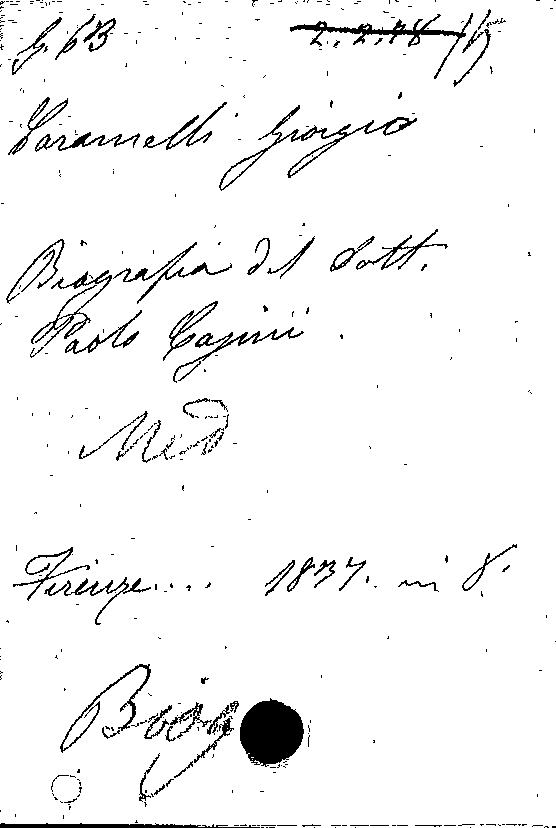 G. 63 2.2.78
Caramelli Giorgio
Biografia del Dott.
Paolo Cajini.
Med
Firenze.... 1837. in 8.
Biog